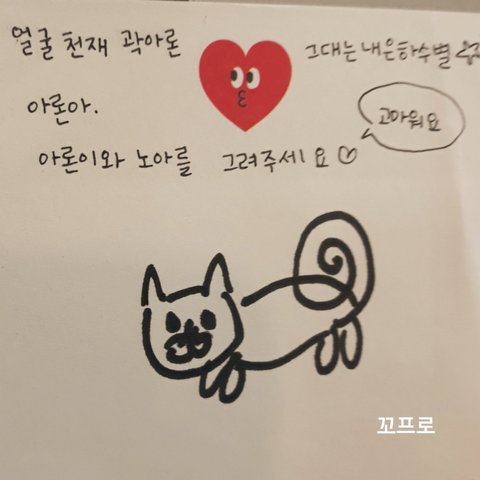 얼굴 천재 곽아론
그대는 내 은하수 별
아론아.
고마워요
아론이와 노아를 그려주세요♡
꼬프로